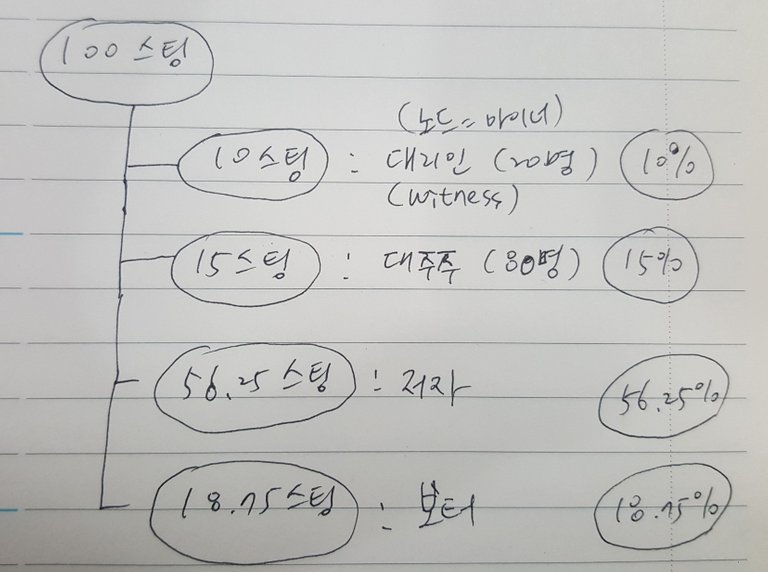 100 스팀
(노드=마이너)
10 스팀 : 대리인 (20명) 10%
(witness)
15 스팀 : 대주주 (80명) 15%
56.25 스팀 : 저자 56.25%
18.75 스팀 : 보터 18.75%